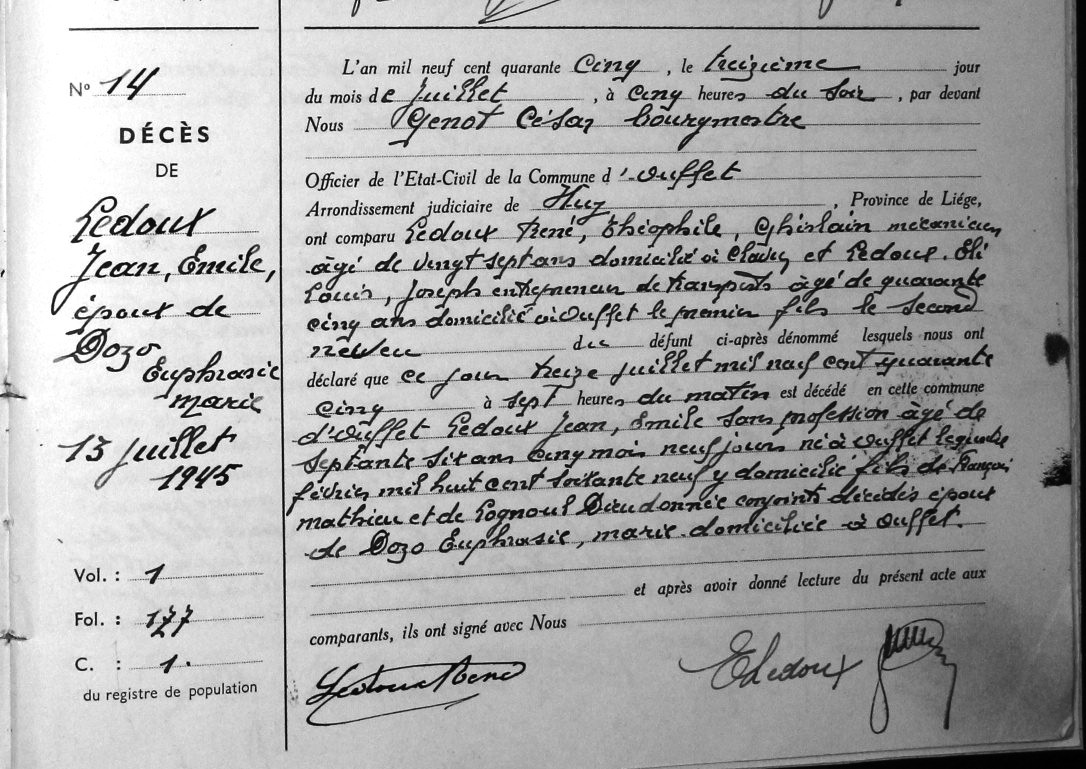 N° 14
DÉCÈS
DE
Ledoux
Jean, Emile,
époux de
Dozo
Euphrasie
marie
13 juillet
1945
Vol. : 1
Fol. : 177
C. : 1.
du registre de population
L'an mil neuf cent quarante Cinq, le treizième jour
du mois de juillet, à Cinq heures du soir, par devant
Nous Genot César bourgmestre
Officier de l'Etat-Civil de la Commune d'ouffet
Arrondissement judiciaire de Huy, Province de Liége,
ont comparu Ledoux René, théophile, Ghislain mécanicien
âgé de vingt sept ans domicilié à Clavier et Ledoux Eli
Louis, Joseph entrepreneur de transports âgé de quarante
cinq ans domicilié à ouffet le premier fils le second
neveu du défunt ci-après dénommé lesquels nous ont
déclaré que ce jour treize juillet mil neuf cent quarante
cinq à sept heures du matin est décédé en cette commune
d'ouffet Ledoux Jean, Emile sans profession âgé de
septante six ans cinq mois neuf jours né à ouffet le quatre
février mil huit cent soixante neuf y domicilié fils de François
mathieu et de Lognoul Dieudonnée conjoints décédés époux
de Dozo Euphrasie, marie domiciliée à ouffet.
et après avoir donné lecture du présent acte aux
comparants, ils ont signé avec Nous
Ledoux René
E Ledoux